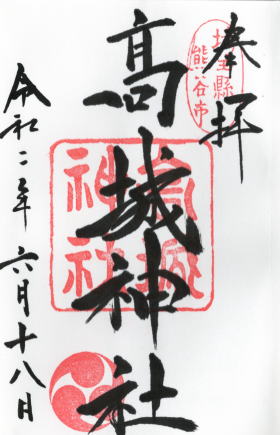 奉拝
埼玉縣
熊谷市
髙城神社
高城
神社
令和二年六月十八日